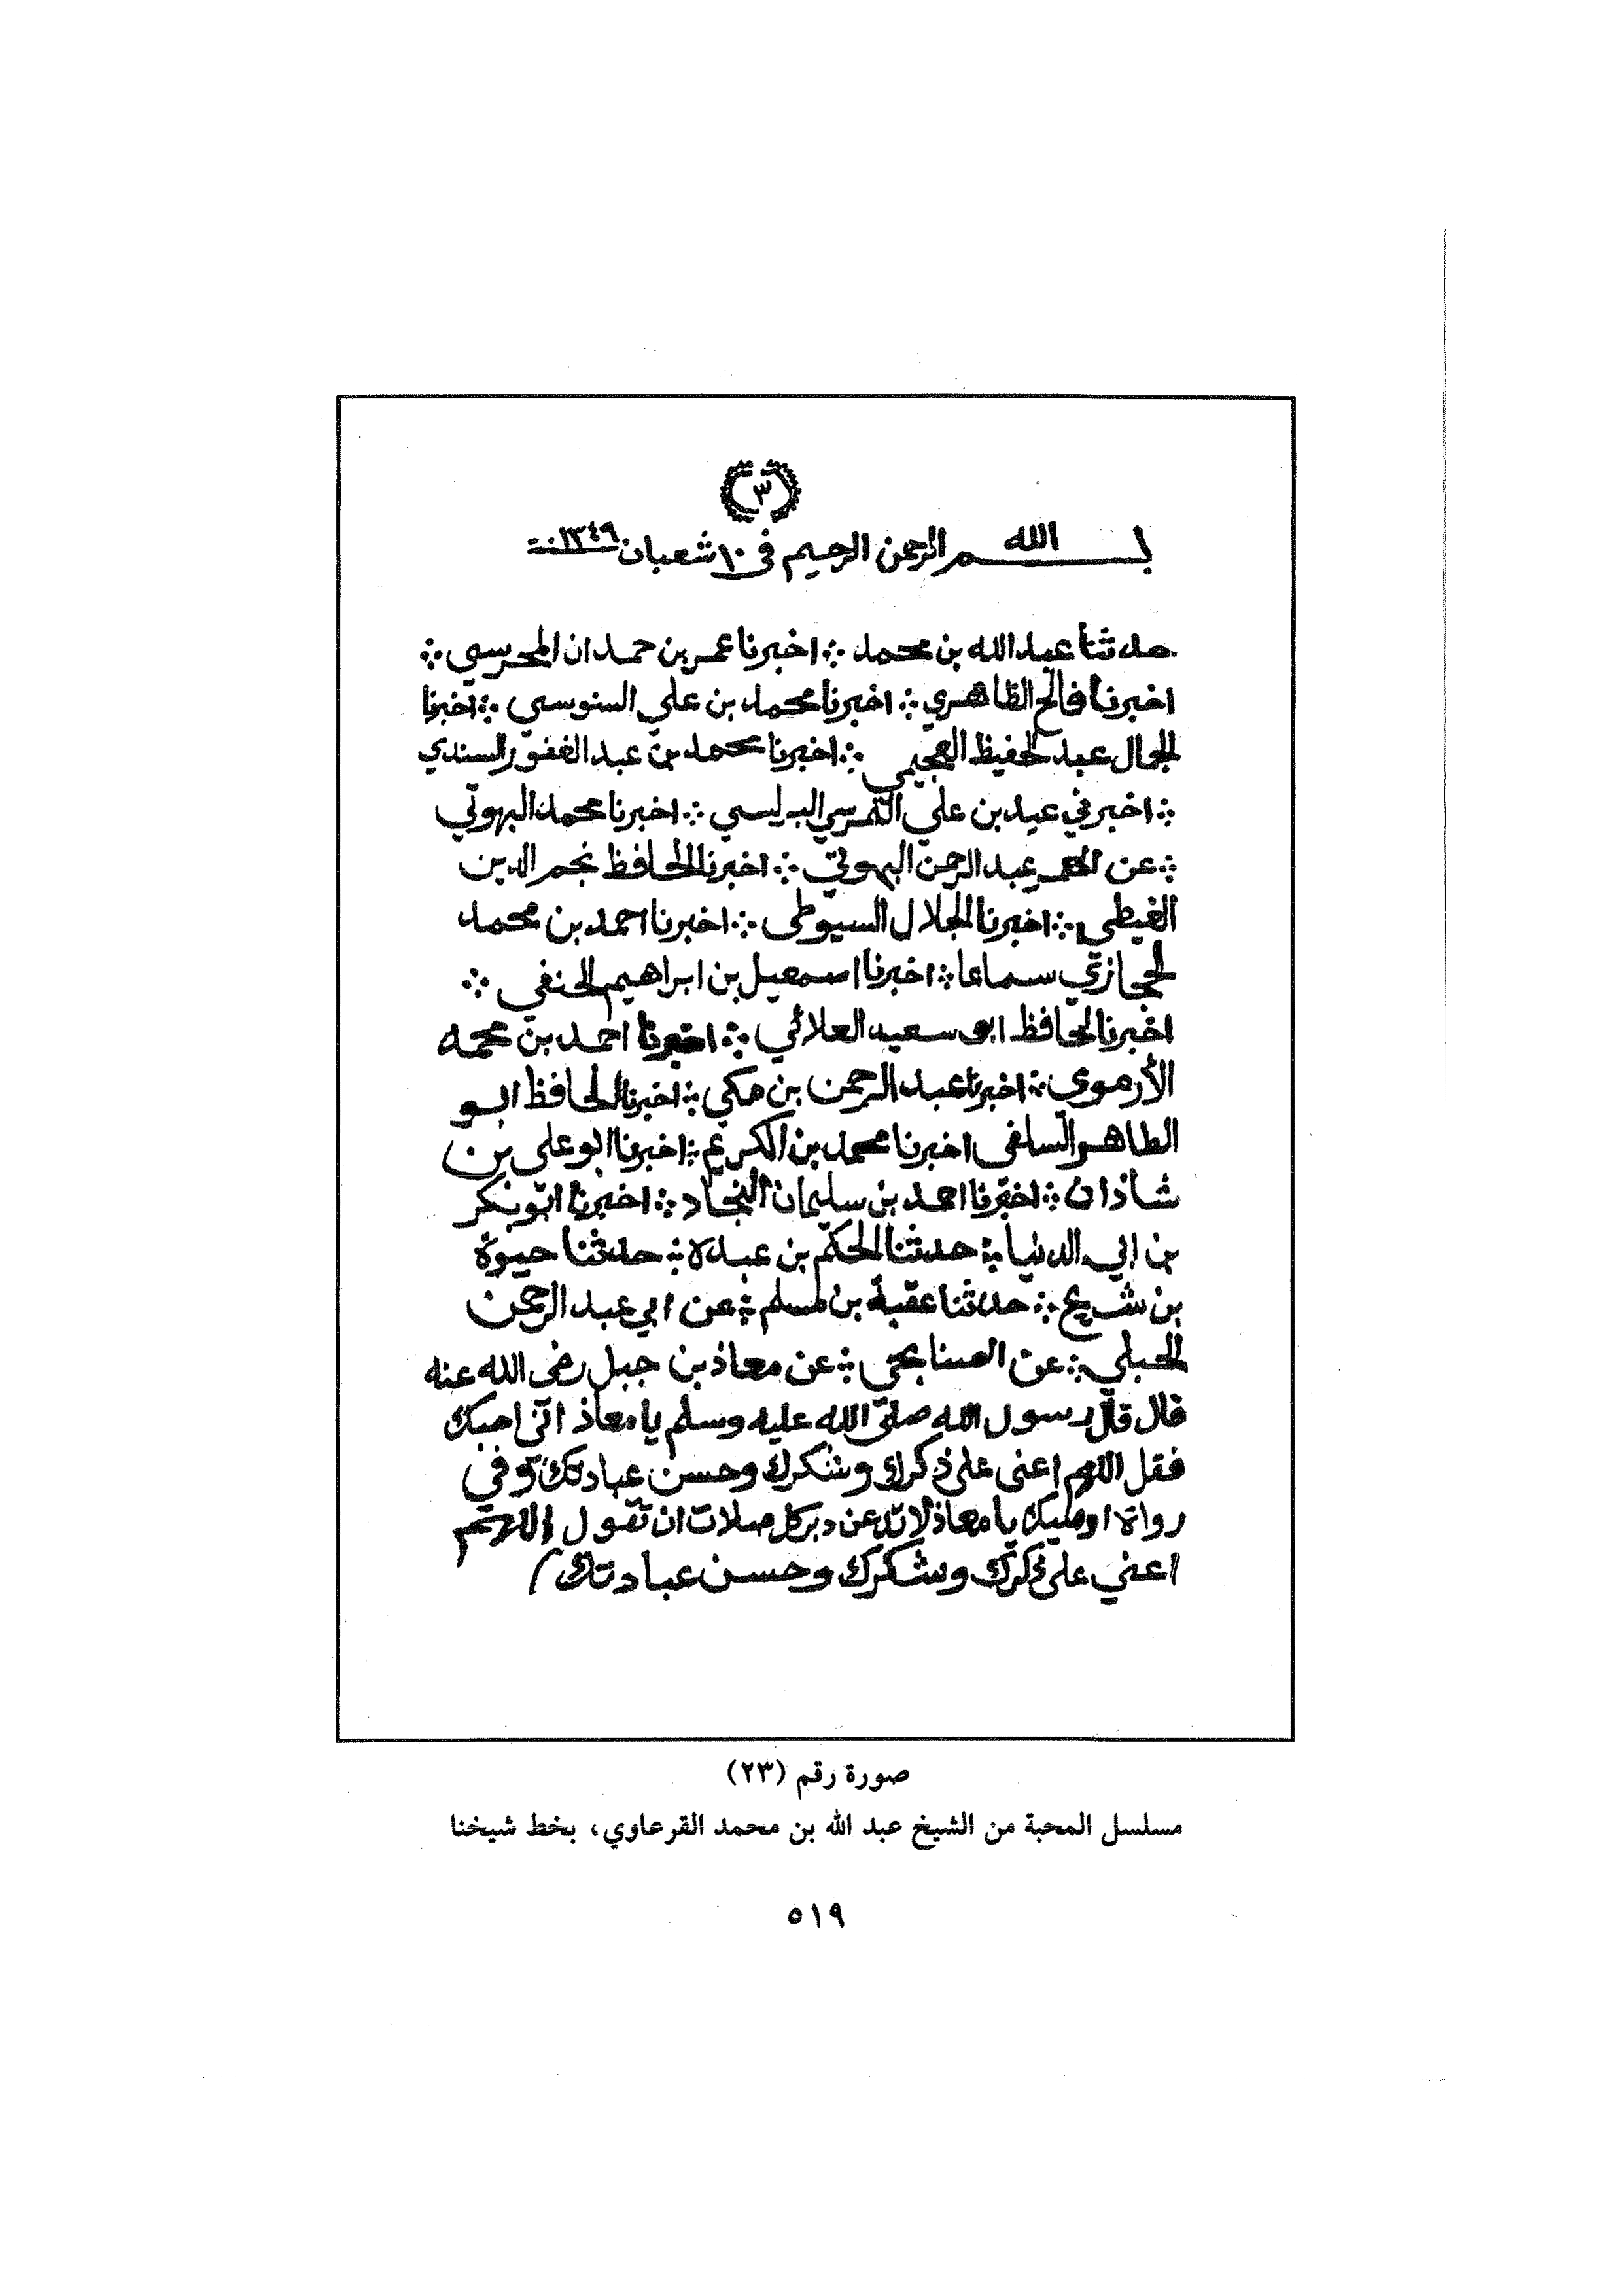 ٣
بسم الله الرحمن الرحيم في ١٠ شعبان ١٣٤٩ سنة
حدثنا عبد الله بن محمد ؞ اخبرنا عمر بن حمدان المحرسي ؞
اخبرنا فالح الظاهري ؞ اخبرنا محمد بن علي السنوسي ؞ اخبرنا
الجمال عبد الحفيظ العجيمي ؞ اخبرنا محمد بن عبد الغفور السندي
؞ اخبرني عيد بن علي النمرسي البرلسي ؞ اخبرنا محمد البهوتي
؞ عن عبد الرحمن البهوتي ؞ اخبرنا الحافظ نجم الدين
الغيطي ؞ اخبرنا الجلال السيوطي ؞ اخبرنا احمد بن محمد
الحجازي سماعا ؞ اخبرنا اسمعيل بن ابراهيم الحنفي ؞
اخبرنا الحافظ ابو سعيد العلائي ؞ اخبرنا احمد بن محمد
الأرموي ؞ اخبرنا عبد الرحمن بن مكي ؞ اخبرنا الحافظ ابو
الطاهر السلفى اخبرنا محمد بن الكريم ؞ اخبرنا ابو على بن
شاذان ؞ اخبرنا احمد بن سليمان النجاد ؞ اخبرنا ابو بكر
بن ابي الدنيا ؞ حدثنا الحكم بن عبدة ؞ حدثنا حيوة
بن شريح ؞ حدثنا عقبة بن مسلم ؞ عن ابي عبد الرحمن
الحبلي ؞ عن الصنابحي ؞ عن معاذ بن جبل رضى الله عنه
قال قال رسول الله صلى الله عليه وسلم يا معاذ انى احبك
فقل اللهم اعنى على ذكرك وشكرك وحسن عبادتك وفي
رواة اوصيك يا معاذ لا تدعن دبر كل صلات ان تقول اللهم
اعني على ذكرك وشكرك وحسن عبادتك /
صورة رقم (٢٣)
مسلسل المحبة من الشيخ عبد الله بن محمد القرعاوي، بخط شيخنا
٥١٩